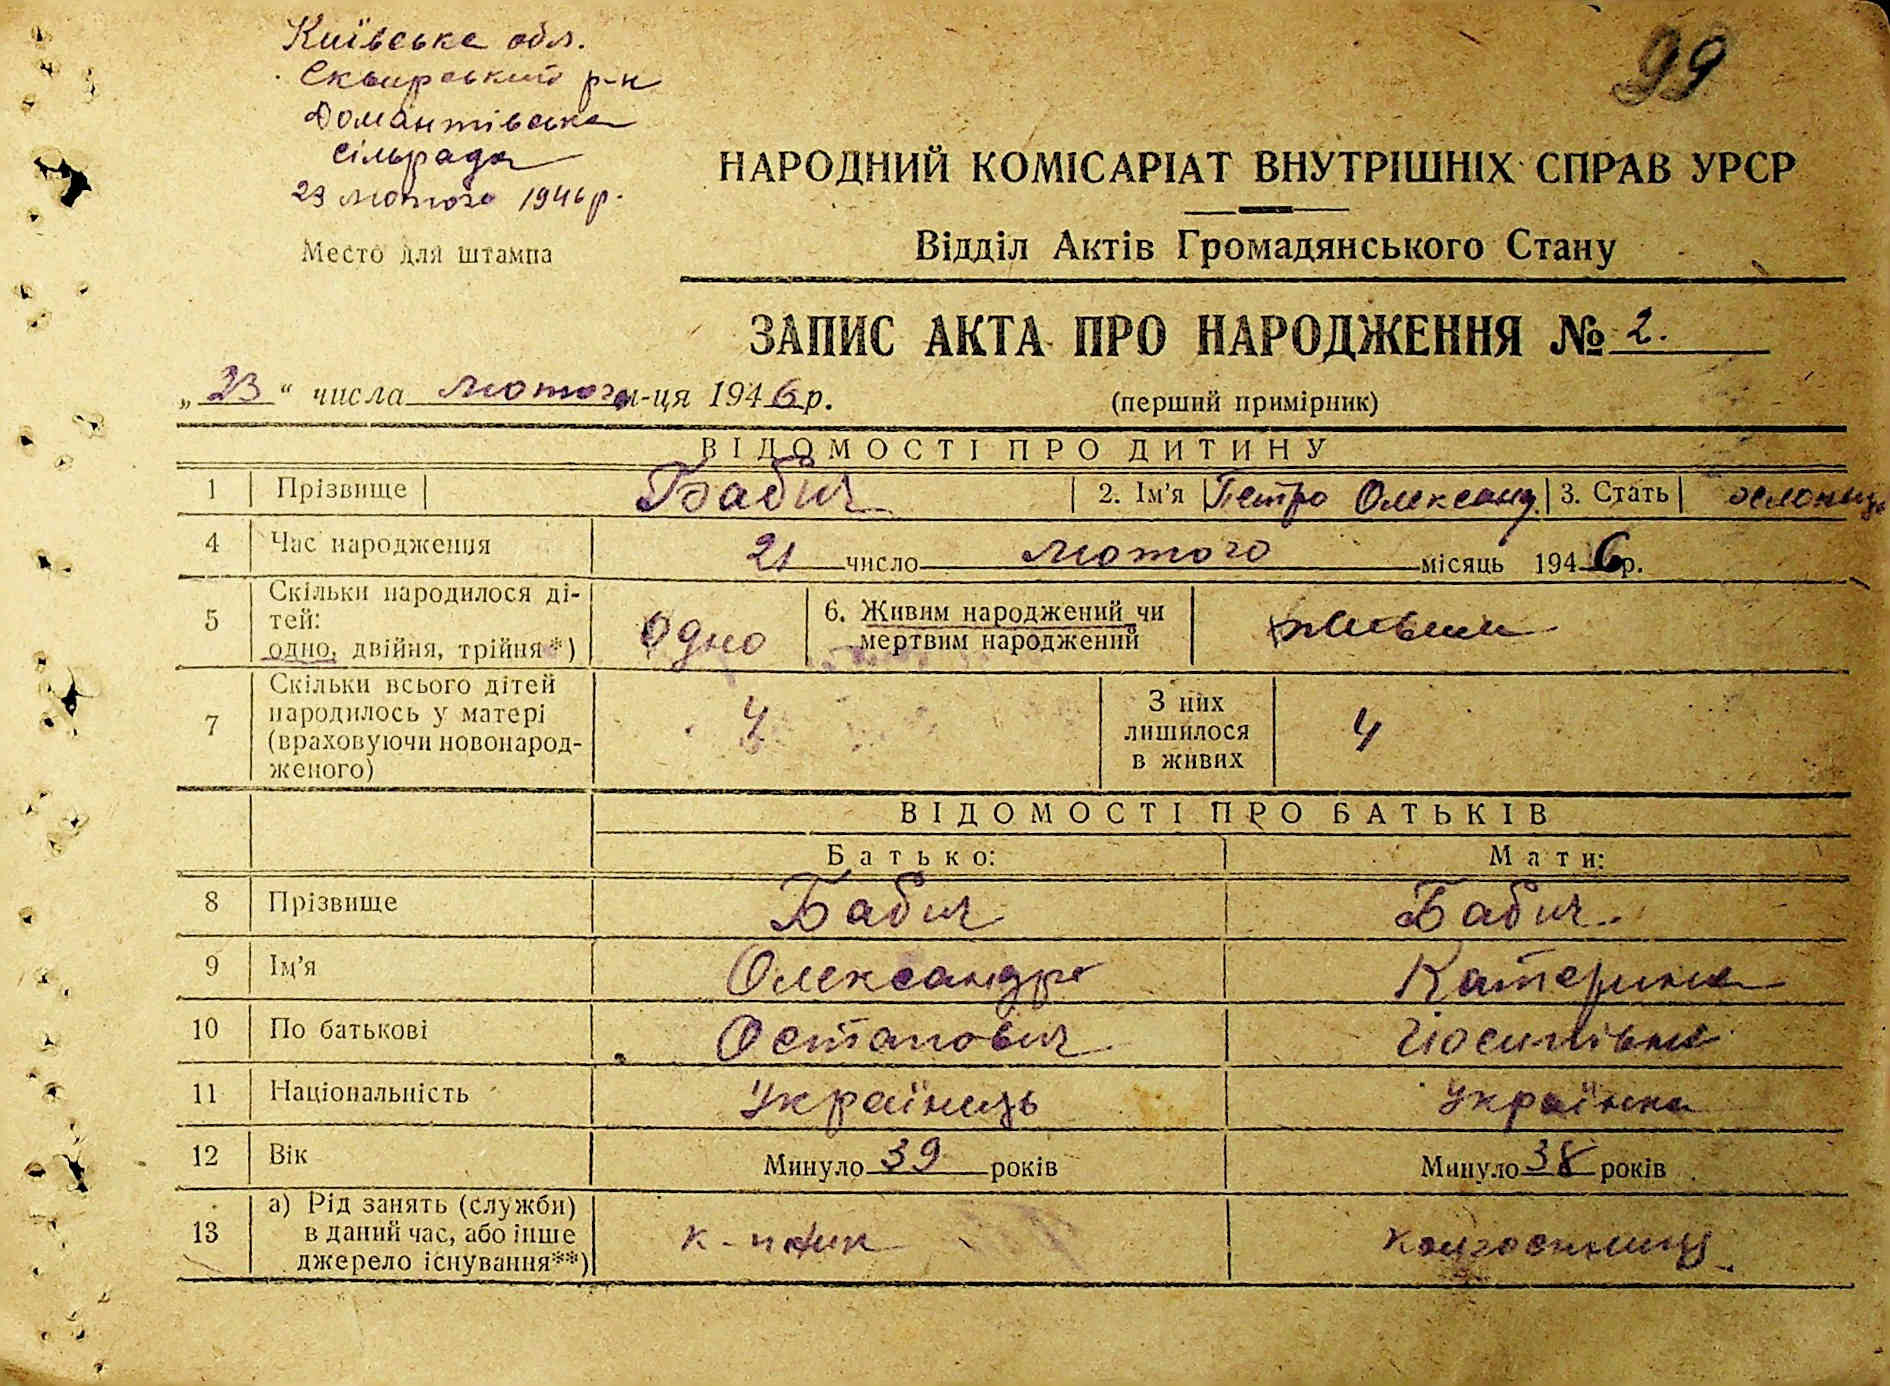 Київська обл.
Сквирський р-н
Домантівська
сільрада
23 лютого 1946 р.
Место для штампа
99
НАРОДНИЙ КОМІСАРІАТ ВНУТРІШНІХ СПРАВ УРСР
Відділ Актів Громадянського Стану
ЗАПИС АКТА ПРО НАРОДЖЕННЯ № 2.
„23“ числа лютого м-ця 1946 р.
(перший примірник)
ВІДОМОСТІ ПРО ДИТИНУ
1 Прізвище Бабич 2. Ім'я Петро Олександ. 3. Стать
4 Час народження 21 число лютого місяць 1946 р.
5 Скільки народилося ді-
тей:
одно, двійня, трійня*) Одно
6. Живим народжений чи
мертвим народжений живим
7 Скільки всього дітей
народилось у матері
(враховуючи новонарод-
женого) 4
З них
лишилося
в живих 4
ВІДОМОСТІ ПРО БАТЬКІВ
Батько: Мати:
8 Прізвище Бабич Бабич
9 Ім'я Олександр Катерина
10 По батькові Остапович Йосипівна
11 Національність Українець Українка
12 Вік Минуло 39 років Минуло 38 років
13 а) Рід занять (служби)
в даний час, або інше
джерело існування**) колгоспниця